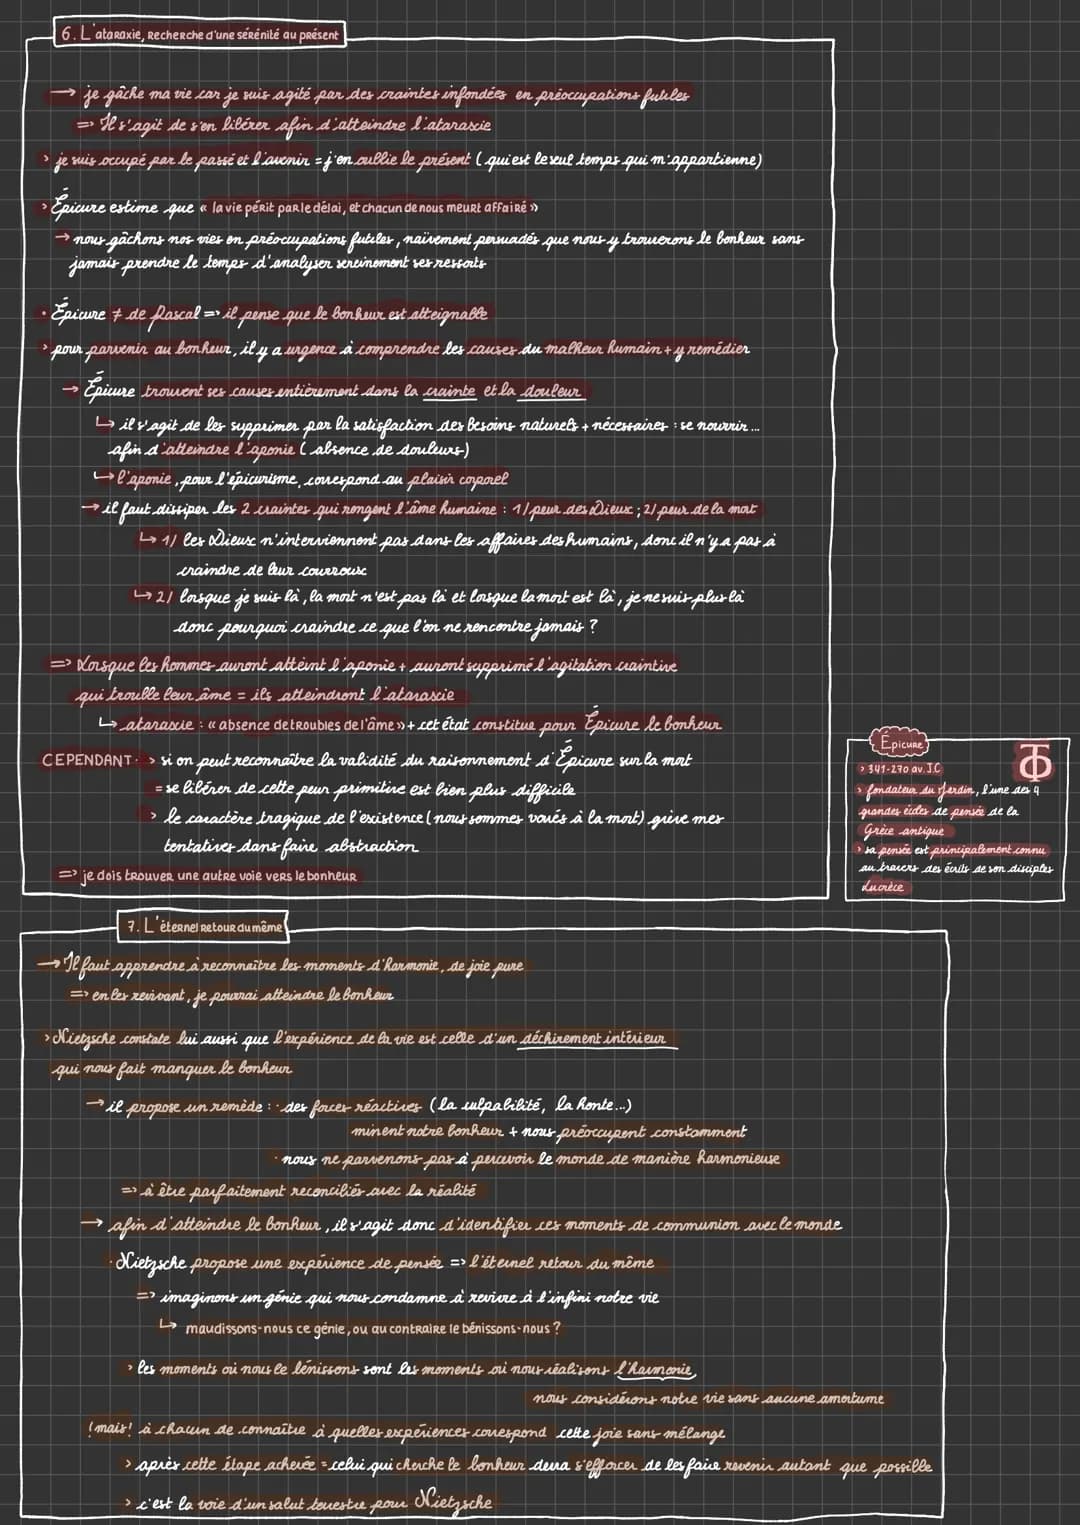 6. L'ataraxie, recherche d'une sérénité au présent
→ je gâche ma vie car je suis agité par des craintes infondées en préoccupations futiles
=> Il s'agit de s'en libérer afin d'atteindre l'ataraxie
> je suis occupé par le passé et l'avenir = j'en oublie le présent (qui est le seul temps qui m'appartienne)
> Épicure estime que « la vie périt par le délai, et chacun de nous meurt affairé »
→ nous gâchons nos vies en préoccupations futiles, naïvement persuadés que nous y trouverons le bonheur sans
jamais prendre le temps d'analyser sereinement ses ressorts
• Épicure ≠ de Pascal => il pense que le bonheur est atteignable
> pour parvenir au bonheur, il y a urgence à comprendre les causes du malheur humain + y remédier
→ Épicure trouvent ses causes entièrement dans la crainte et la douleur
↳ il s'agit de les supprimer par la satisfaction des besoins naturels + nécessaires : se nourrir...
afin d'atteindre l'aponie (absence de douleurs)
↳ l'aponie, pour l'épicurisme, correspond au plaisir corporel
→ il faut dissiper les 2 craintes qui rongent l'âme humaine : 1/ peur des Dieux ; 2/ peur de la mort
↳ 1/ les Dieux n'interviennent pas dans les affaires des humains, donc il n'y a pas à
craindre de leur courroux
↳ 2/ lorsque je suis là, la mort n'est pas là et lorsque la mort est là, je ne suis plus là
donc pourquoi craindre ce que l'on ne rencontre jamais ?
=> Lorsque les hommes auront atteint l'aponie + auront supprimé l'agitation craintive
qui trouble leur âme = ils atteindront l'ataraxie
↳ ataraxie : « absence de troubles de l'âme » + cet état constitue pour Épicure le bonheur
CEPENDANT • > si on peut reconnaître la validité du raisonnement d'Épicure sur la mort
= se libérer de cette peur primitive est bien plus difficile
> le caractère tragique de l'existence (nous sommes voués à la mort) grève mes
tentatives dans faire abstraction
=> je dois trouver une autre voie vers le bonheur
Épicure
> 341-270 av. J.C
> fondateur du Jardin, l'une des 4
grandes écoles de pensée de la
Grèce antique
> sa pensée est principalement connu
au travers des écrits de son disciples
Lucrèce
7. L'éternel retour du même
→ Il faut apprendre à reconnaître les moments d'harmonie, de joie pure
=> en les revivant, je pourrai atteindre le bonheur
> Nietzsche constate lui aussi que l'expérience de la vie est celle d'un déchirement intérieur
qui nous fait manquer le bonheur
→ il propose un remède : • des forces réactives (la culpabilité, la honte...)
minent notre bonheur + nous préoccupent constamment
• nous ne parvenons pas à percevoir le monde de manière harmonieuse
=> à être parfaitement reconciliés avec la réalité
→ afin d'atteindre le bonheur, il s'agit donc d'identifier ces moments de communion avec le monde
• Nietzsche propose une expérience de pensée => l'éternel retour du même
=> imaginons un génie qui nous condamne à revivre à l'infini notre vie
↳ maudissons-nous ce génie, ou au contraire le bénissons-nous ?
> les moments où nous le bénissons sont les moments où nous réalisons l'harmonie,
nous considérons notre vie sans aucune amertume
!mais! à chacun de connaître à quelles expériences correspond cette joie sans mélange
> après cette étape achevée = celui qui cherche le bonheur devra s'efforcer de les faire revenir autant que possible
> c'est la voie d'un salut terrestre pour Nietzsche